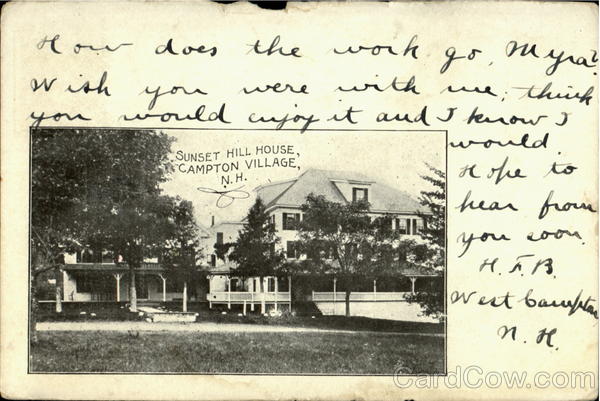 How does the work go, Myra?
Wish you were with me, think
you would enjoy it and I know I
would.
Hope to
hear from
you soon.
H. F. B.
West Campton,
N. H.
SUNSET HILL HOUSE,
CAMPTON VILLAGE,
N.H.
CardCow.com